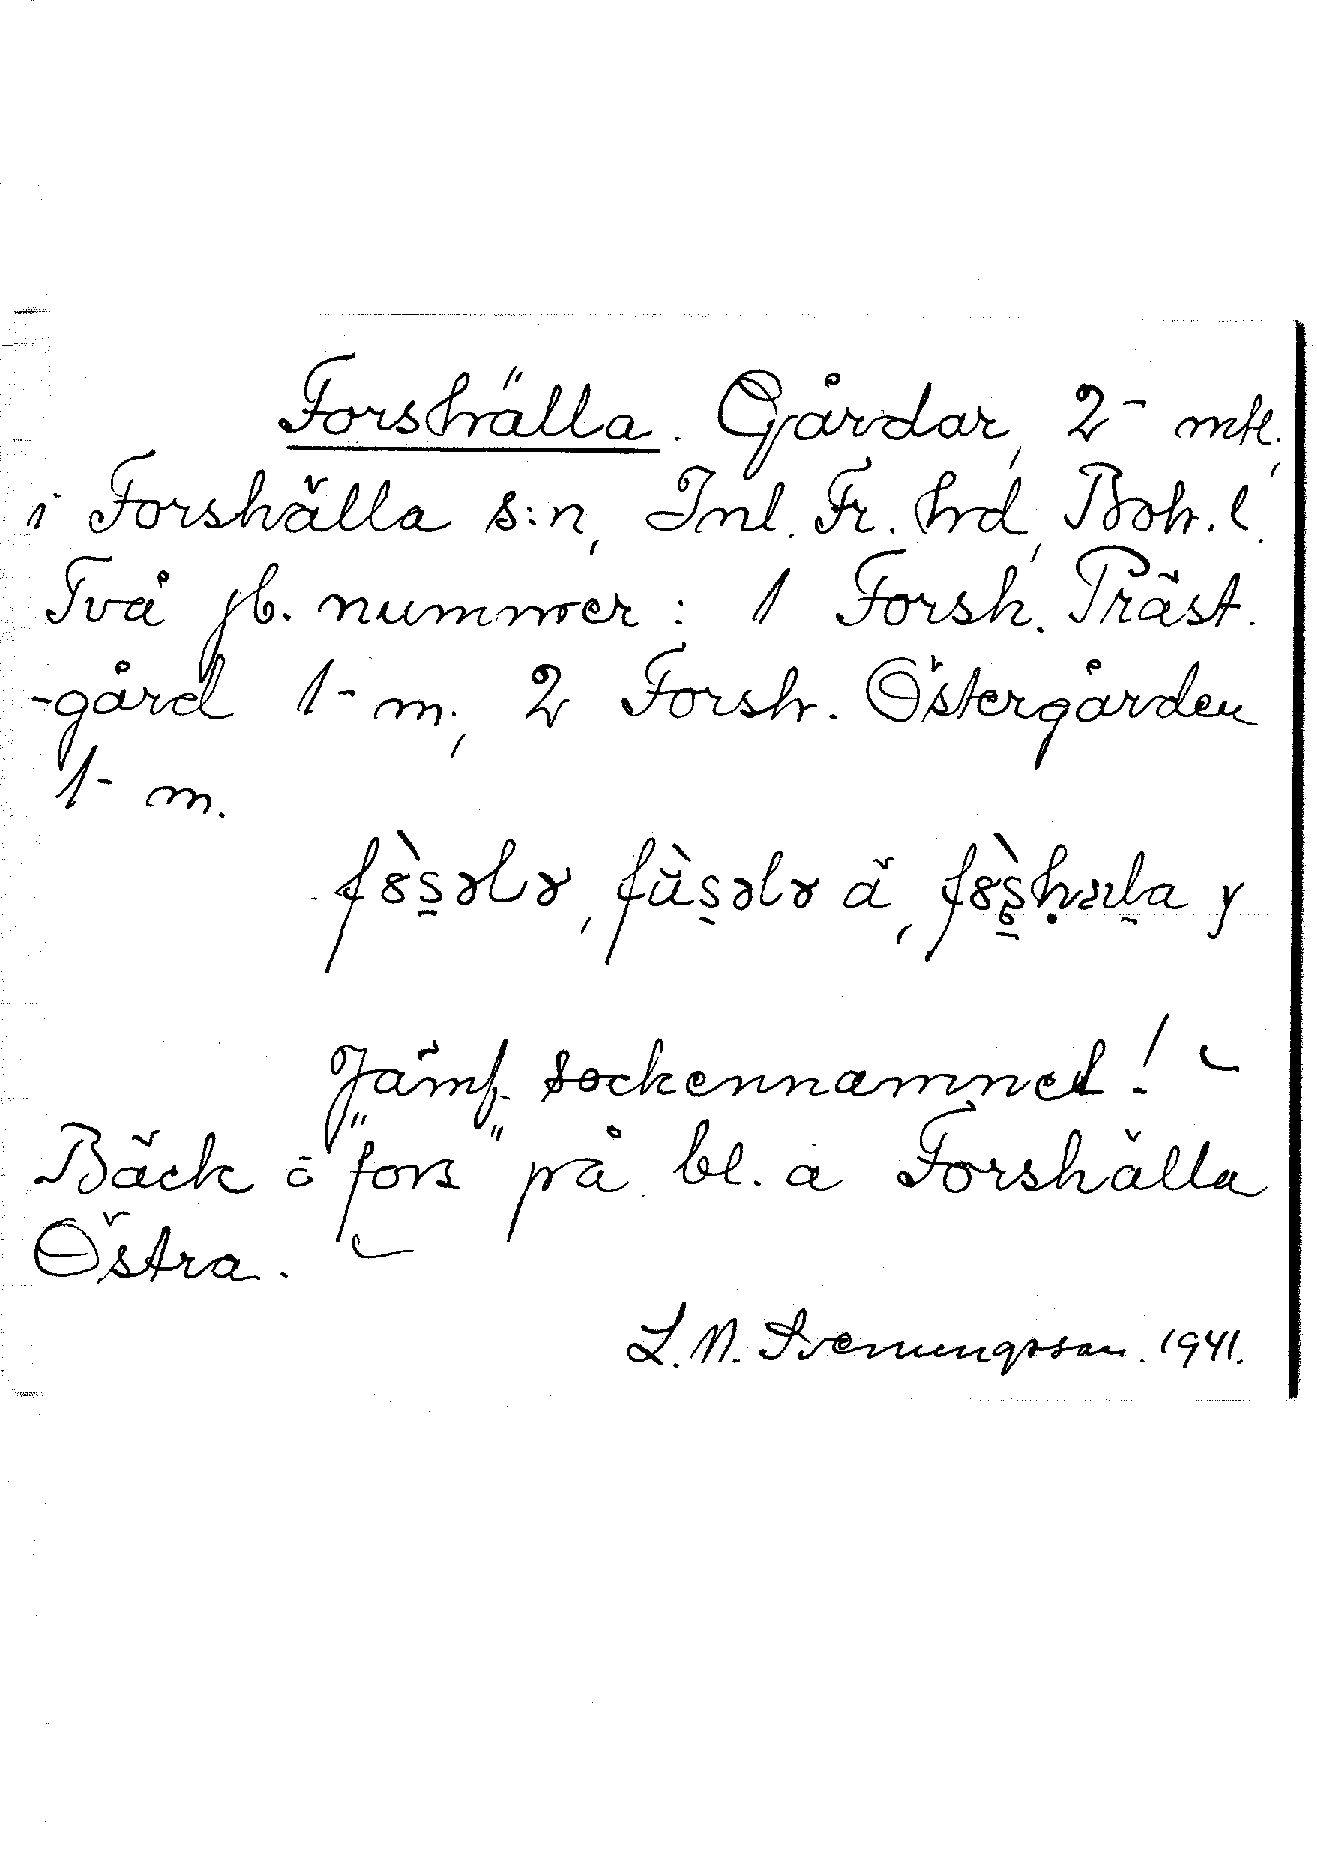 Forshälla. Gårdar, 2- mtl.,
i Forshälla s:n, Inl. Fr. hd, Boh. l.
Två jb. nummer: 1 Forsh. Präst-
-gård 1- m., 2 Forsh. Östergården
1- m.
Jämf. sockennamnet!
Bäck ō "fors" på bl. a Forshälla
Östra.
L. N. Svenungsson. 1941.